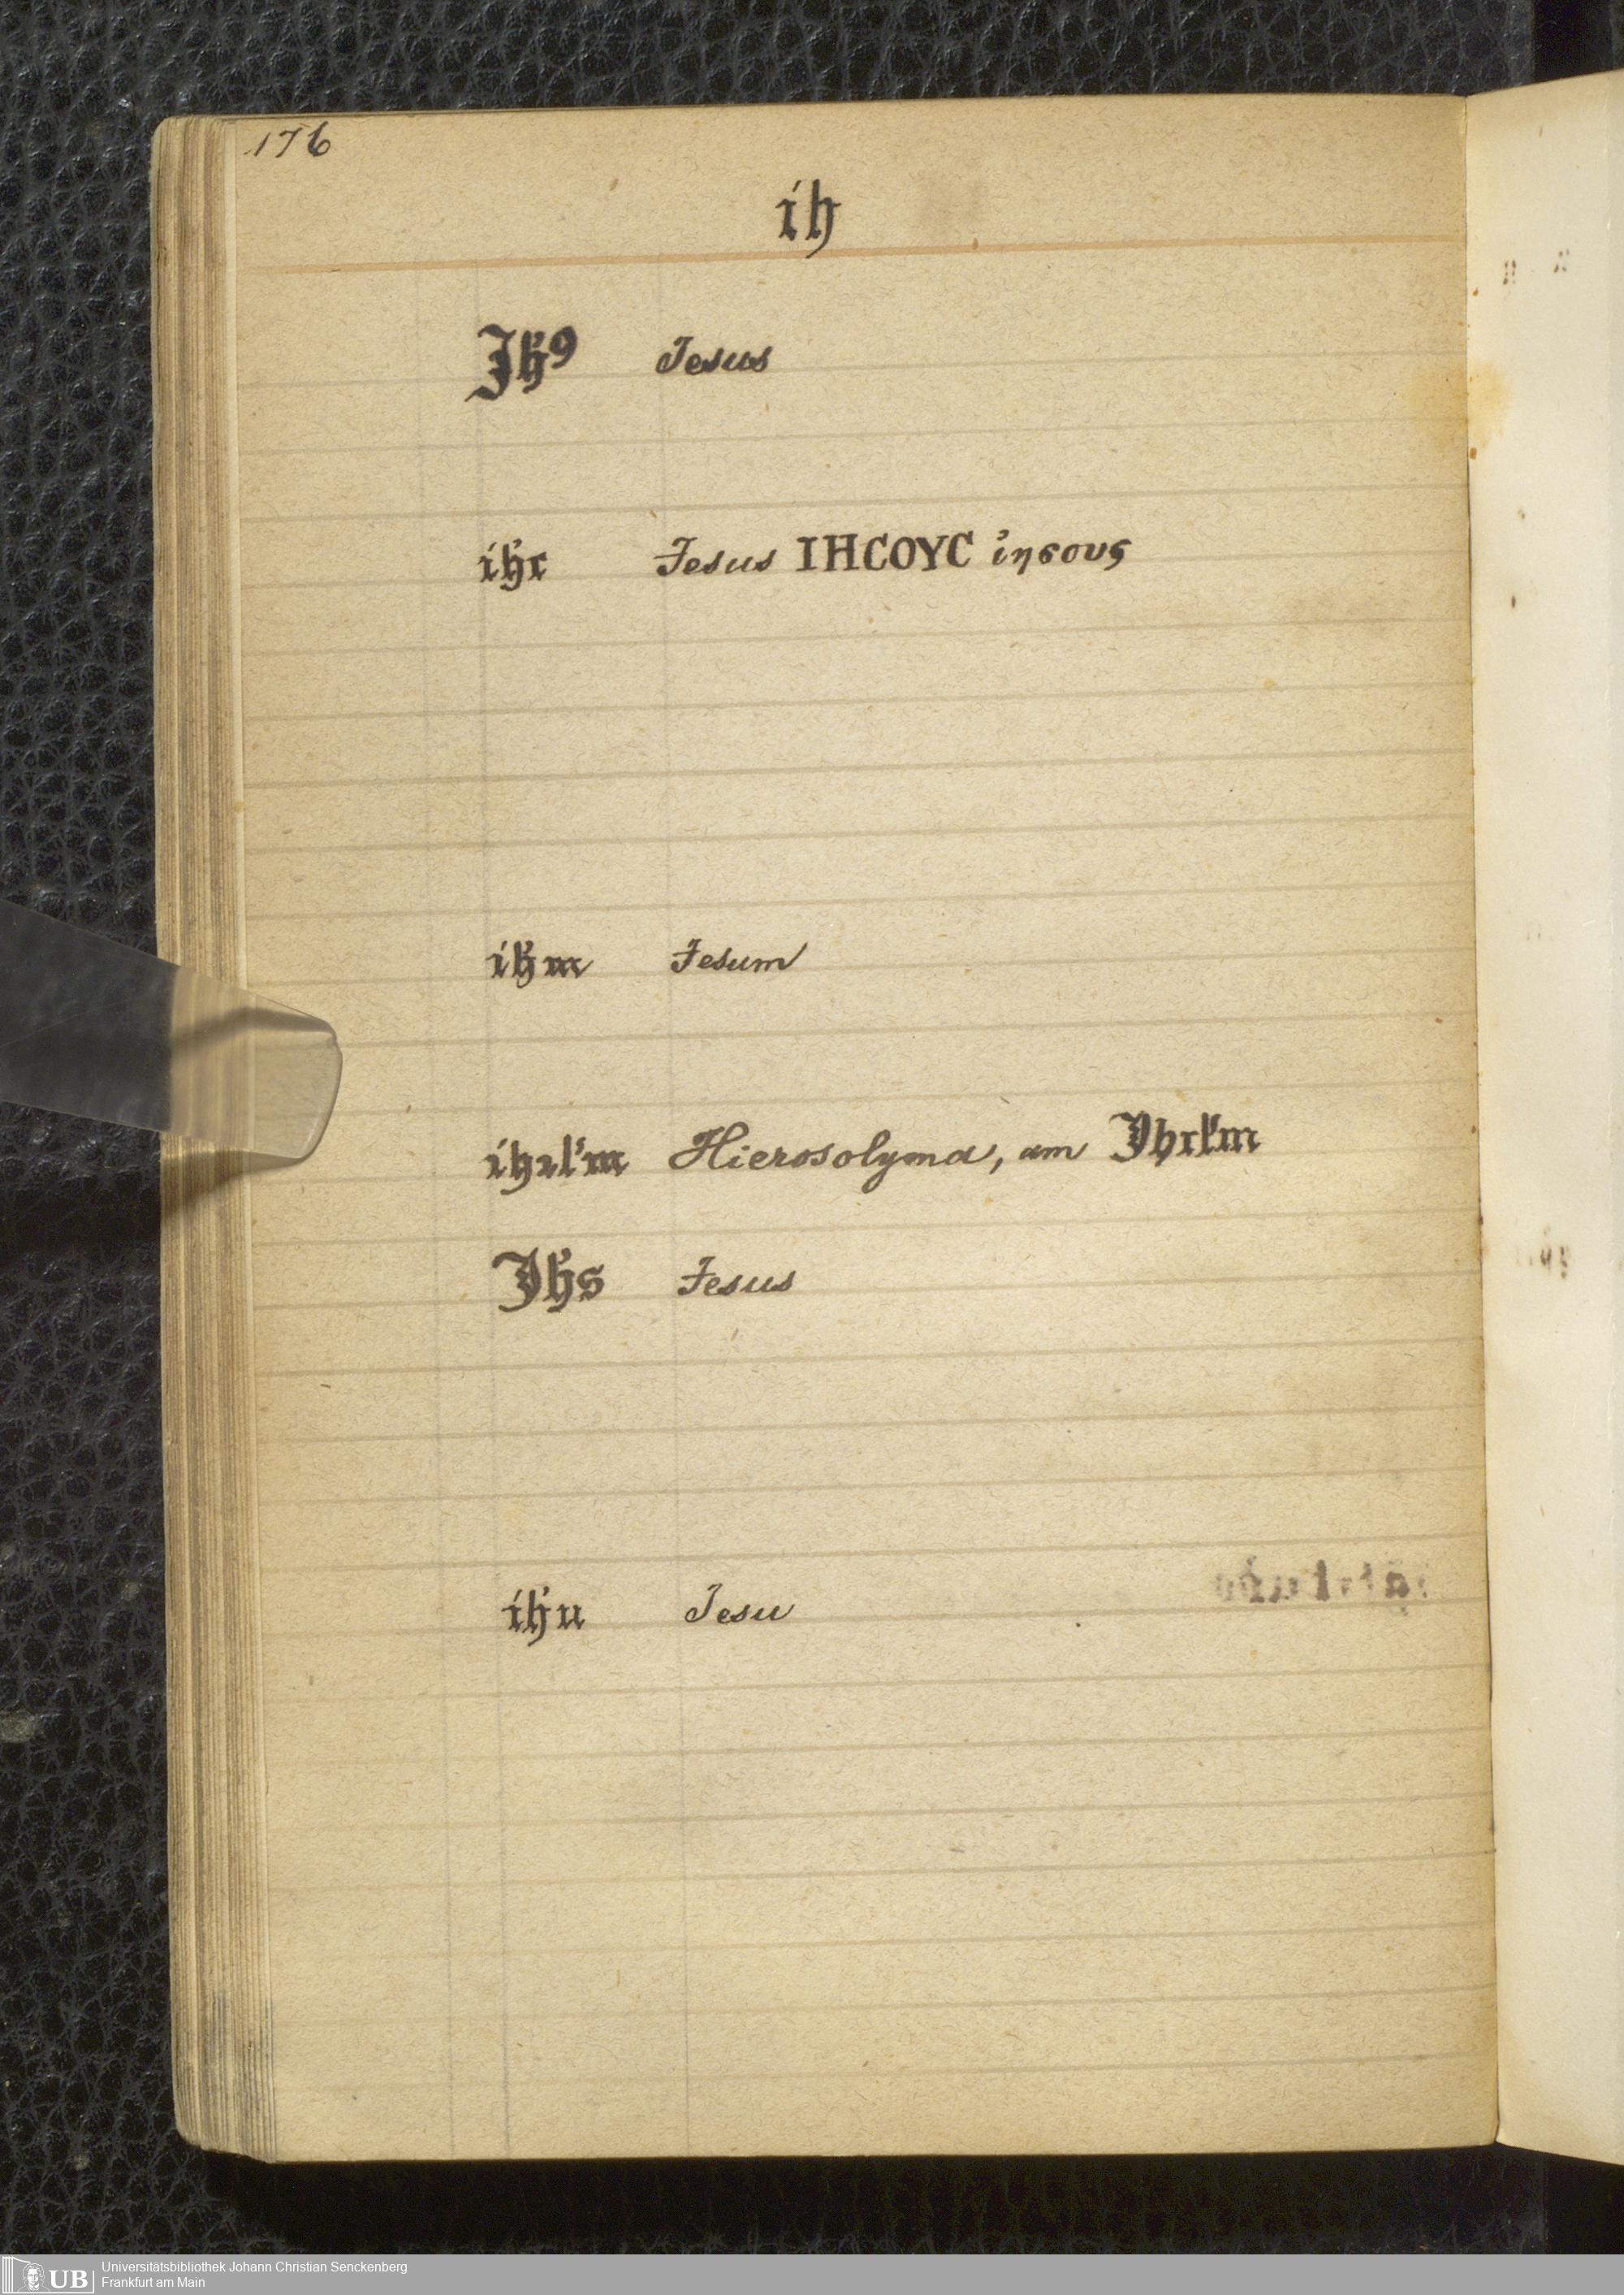 176
ih
Jhꝰ Jesus
ihc Jesus IHCOYC ἰησους
ihm Jesum
ihrl'm Hierosolyma, am Jhrl'm
Jhs Jesus
ihu Jesu
UB Universitätsbibliothek Johann Christian Senckenberg
Frankfurt am Main